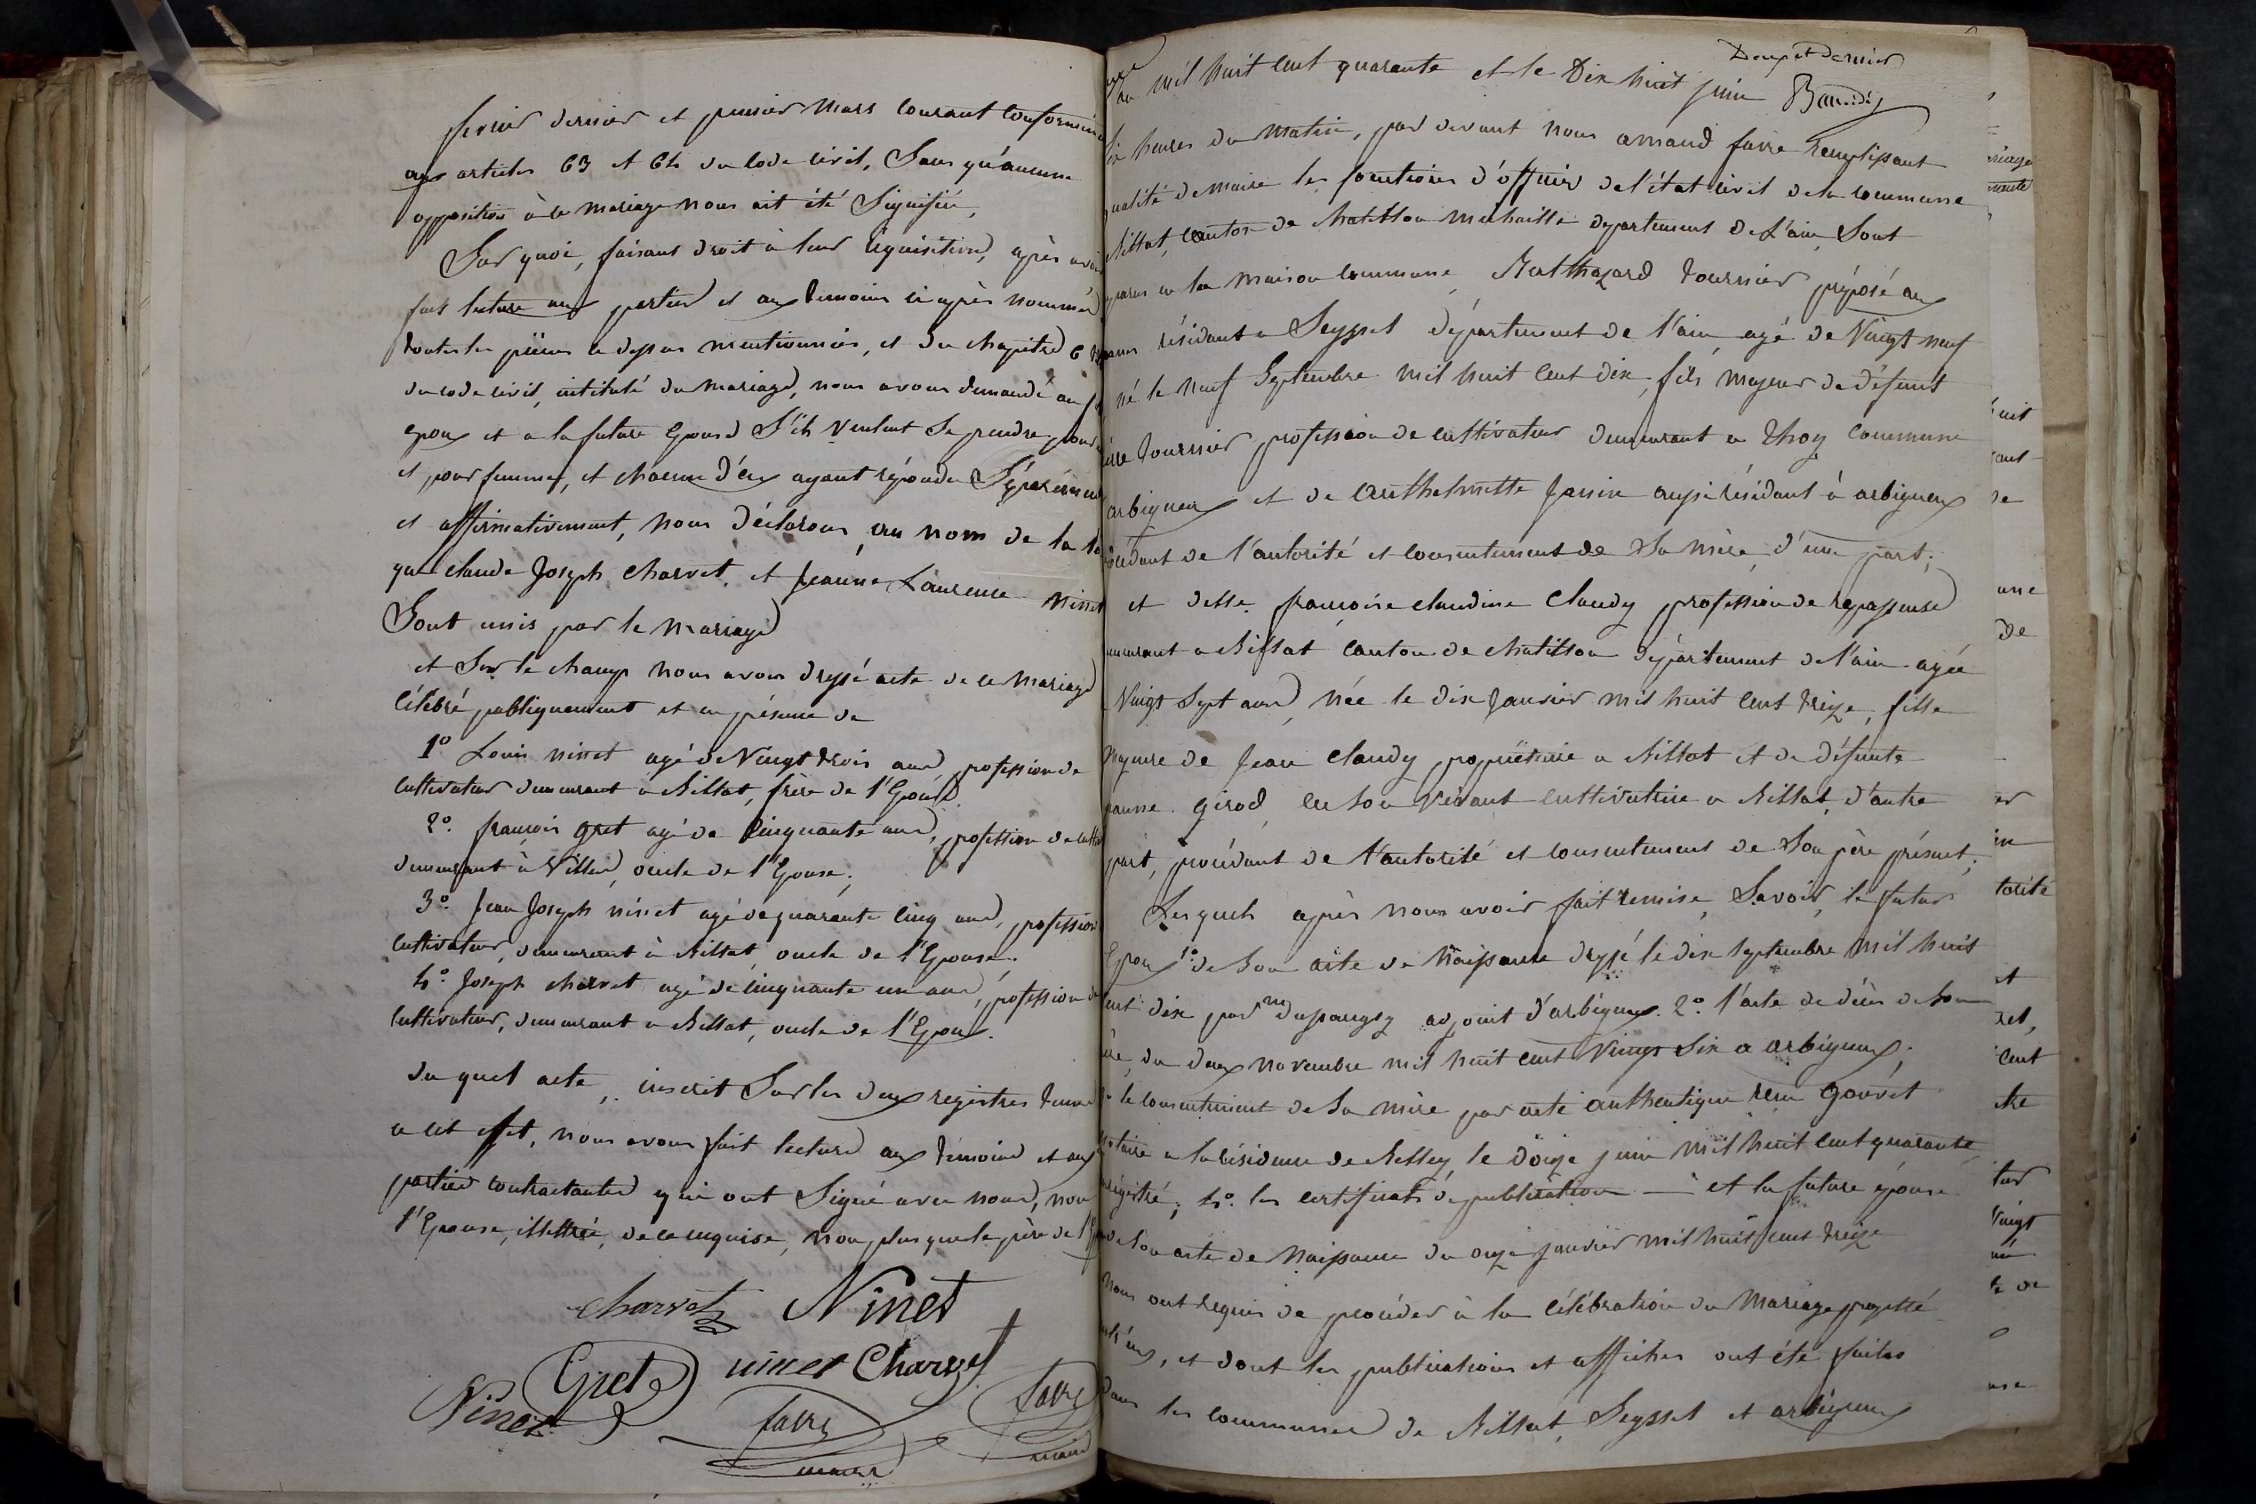 fevrier dernier et premier mars courant conformément
aux articles 63 et 64 du code civil, Sans qu'aucune
opposition à ce mariage nous ait été Signifiée,
Sur quoi, faisant droit à leur réquisition, après avoir
fait lecture aux parties et aux temoins ci après nommés
toutes les pièces ci dessus mentionnées, et du chapitre 6
du code civil, intitulé du mariage, nous avons demandé au
epoux et a la future Epouse S'ils veulent Se prendre pour
et pour femme, et chacun d'eux ayant répondu Séparément
et affirmativement, nous déclarons au nom de la loi
que claude Joseph Charvet, et Jeanne Laurence ninet
Sont unis par le mariage
et Sur le champ nous avons dressé acte de ce mariage
célébré publiquement et en présence de
1° Louis ninet agé de Vingt trois ans, profession de
cultivateur demeurant à Billiat, frère de l'Epouse
2° françois gret agé de Cinquante ans, profession de
demeurant à Villes, oncle de l'Epouse,
3° Jean Joseph ninet agé de quarante cinq ans, profession
cultivateur, demeurant à Billiat, oncle de l'Epouse.
4° Joseph charvet agé de cinquante un ans, profession de
cultivateur, demeurant a Billiat, oncle de l'Epoux.
du quel acte, inscrit Sur les deux registres tenus
a cet effet, nous avons fait lecture aux témoins et aux
parties contractantes qui ont Signé avec nous, non
l'Epouse, illettrée, de ce enquise, non plus que le père de l'
Charvet Ninet
Gret ninet Charvet
Ninet favre favre
maire maire
Deux et dernier
an mil huit cent quarante et le Dix huit juin
heures du matin, par devant nous amand favre remplissant
qualité de maire les fonctions d'officier de l'état civil de la commune
Billiat, canton de Chatillon michaille departement de l'ain, Sont
comparus en la maison commune, Balthazard tournier préposé aux
résidant a Seyssel département de l'ain, agé de Vingt neuf
né le neuf Septembre mil huit cent dix, fils majeur de défunt
tournier profession de cultivateur demeurant a thoy commune
arbignieu et de Anthelmette Janin aussi résidant à arbignieux
procédant de l'autorité et consentement de Sa mère, d'une part;
et delle. françoise claudine Claudy profession de repasseuse
demeurant a Billiat canton de chatillon département de l'ain agée
Vingt Sept ans, née le dix Janvier mil huit cent treize, fille
majeure de Jean Claudy propriétaire a Billiat et de défunte
girod, en Son vivant cultivatrice a Billiat, d'autre
part, procédant de l'autorité et consentement de Son père présent;
Lesquels après nous avoir fait remise, Savoir, le futur
Epoux 1° de Son acte de Naissance dressé le dix Septembre mil huit
cent dix par adjoint d'arbignieu. 2° l'acte de décès de Son
père, du deux novembre mil huit cent Vingt Six a arbignieux;
le consentement de Sa mère par acte authentique reçu Gouvet
notaire a la résidence de Belley, le douze juin mil huit cent quarante
enregistré; 4° les certificats de publication — et la future épouse
de Son acte de Naissance du onze janvier mil huit cent treize
nous ont requis de procéder à la célébration du Mariage projetté
entr'eux, et dont les publications et affiches ont été faites
dans les communes de Billiat, Seyssel et arbignieux